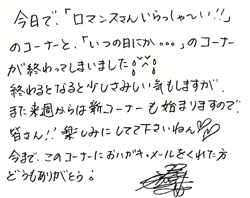 今日で、「ロマンスさんいらっしゃ〜い!!」
のコーナーと、「いつの日にか。。。」のコーナー
が終わってしまいました
終わるとなると少しさみしい気もしますが、
また来週からは新コーナーも始まりますので
皆さん!!楽しみにしてて下さいねん♡
今まで、このコーナーにおハガキ・メールをくれた方
どうもありがとう!